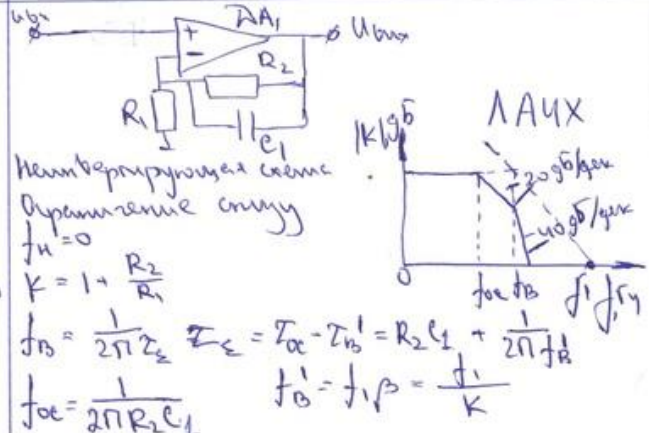 Uвх
DA1
+
−
Uвых
R2
R1
C1
ЛАЧХ
|K|дБ
-20дБ/дек
-40дБ/дек
0
fос fв f1 f,Гц
Неинвертирующая схема
Ограничение снизу
fн=0
K = 1+ R2/R1
fв = 1/2πτε τε = τос - τв' = R2C1 + 1/2πfв'
fос = 1/2πR2C1 fв' = f1β = f1/K